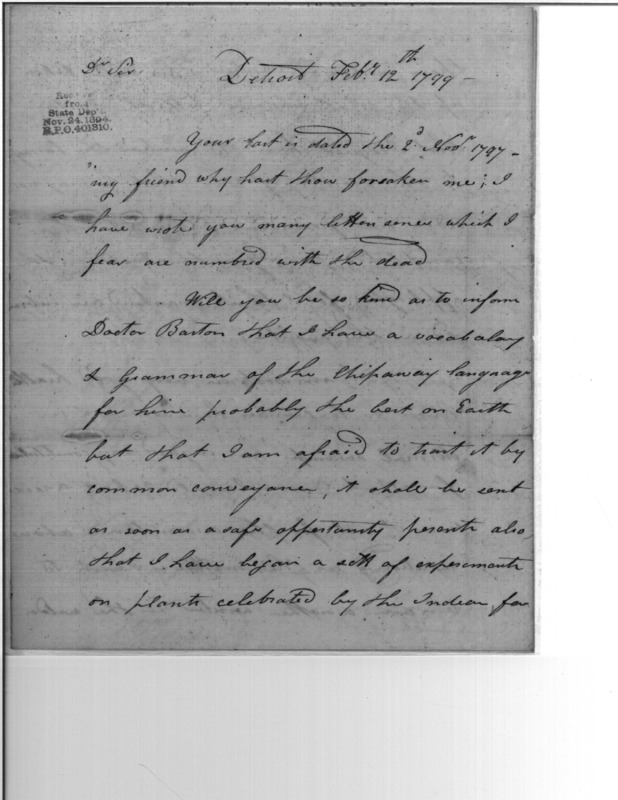 Dr Sir
Detroit Feby 12th 1799 -
Rec
from
State Dep't
Nov. 24. 1894.
R.P.O. 401810.
Your last is dated the 2d Novr 1797 -
"my friend why hast thou forsaken me; I
have wrote you many letters since which I
fear are numbred with the dead
Will you be so kind as to inform
Doctor Barton that I have a vocabulary
& Grammar of the Chipaway language
for him probably the best on Earth
but that I am afraid to trust it by
common conveyance, it shall be sent
as soon as a safe oppertunity presents also,
that I have began a sett of experiments
on plants celebrated by the Indians for